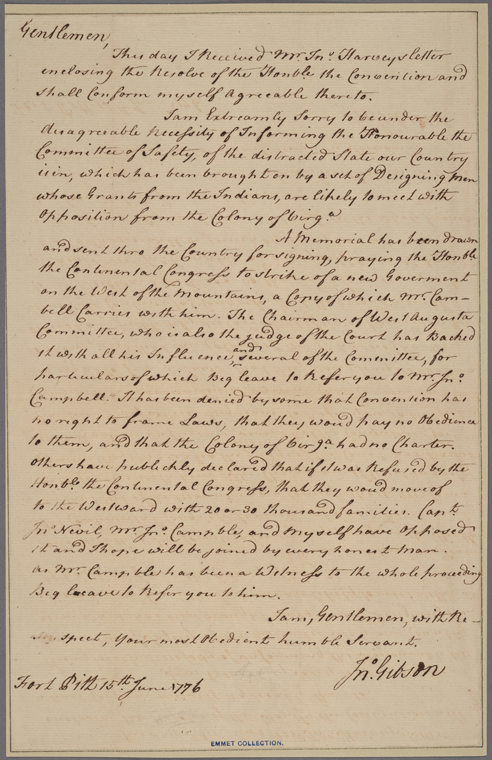 Gentlemen,
This day I Received Mr. Jno. Harveys letter
enclosing the Resolve of the Honble the Convention and
shall Conform myself Agreeable thereto.
I am Extreamly Sorry to be under the
disagreeable Necessity of Informing the Honourable the
Committee of Safety, of the distracted State our Country
is in, which has been brought on by a set of Designing Men
whose Grants from the Indians, are likely to meet with
Opposition from the Colony of Virga
A Memorial has been drawn
and sent thro the Country for signing, praying the Honble
the Continental Congress to strike of a new Goverment
on the West of the Mountains, a Copy of which Mr. Cam-
bell Carries with him. The Chairman of West Augusta
Committee, who is also the judge of the Court has Backed
it with all his Influence, and several of the Committee, for
particulars of which Beg leave to Refer you to Mr. Jno.
Campbell. It has been denied by some that Convention has
no right to frame Laws, that they would pay no Obedience
to them, and that the Colony of Virga had no Charter.
Others have publickly declared that if it was Refused by the
Honble the Continental Congress, that they woud move of
to the Westward with 20 or 30 thousand families. Capt.
Jno. Nevil, Mr. Jno. Campble, and myself have Opposed
it and I hope will be joined by every honest Man.
as Mr. Campble has been a Witness to the whole proceeding
Beg leave to Refer you to him.
I am, Gentlemen, with Re-
spect, Your most Obedient humble Servant.
Jno. Gibson
Fort Pitt 15th June 1776
EMMET COLLECTION.